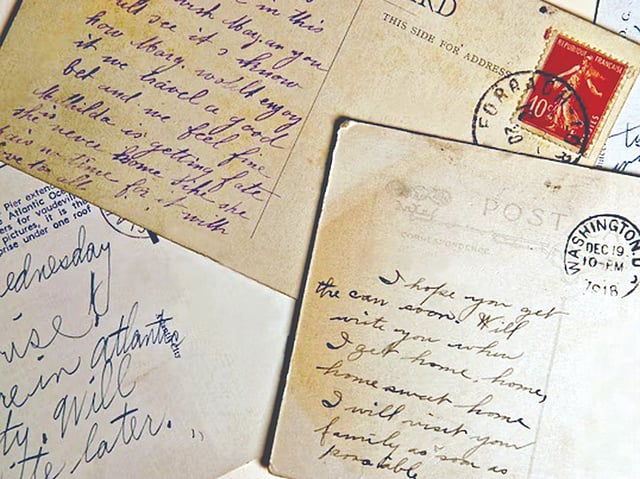 in this
will see it's know
how Mary would enjoy
it we travel a good
bet and we feel fine
Mathilda is getting fate
she's never home like she
is no time for it with
RD
THIS SIDE FOR ADDRESS
REPUBLIQUE FRANÇAISE
10c
Pier exten
Atlantic Oce
ers for vaudevil
pictures, it is the
prise under one roof
ednesday
rise
re in Atlantic
ty. Will
te later.
POST
CORRESPONDENCE
WASHINGTON, D
DEC 19
10-PM
1918
I hope you get
the can soon. Will
write you when
I get home, home,
home sweet home
I will visit your
family as soon as
possible